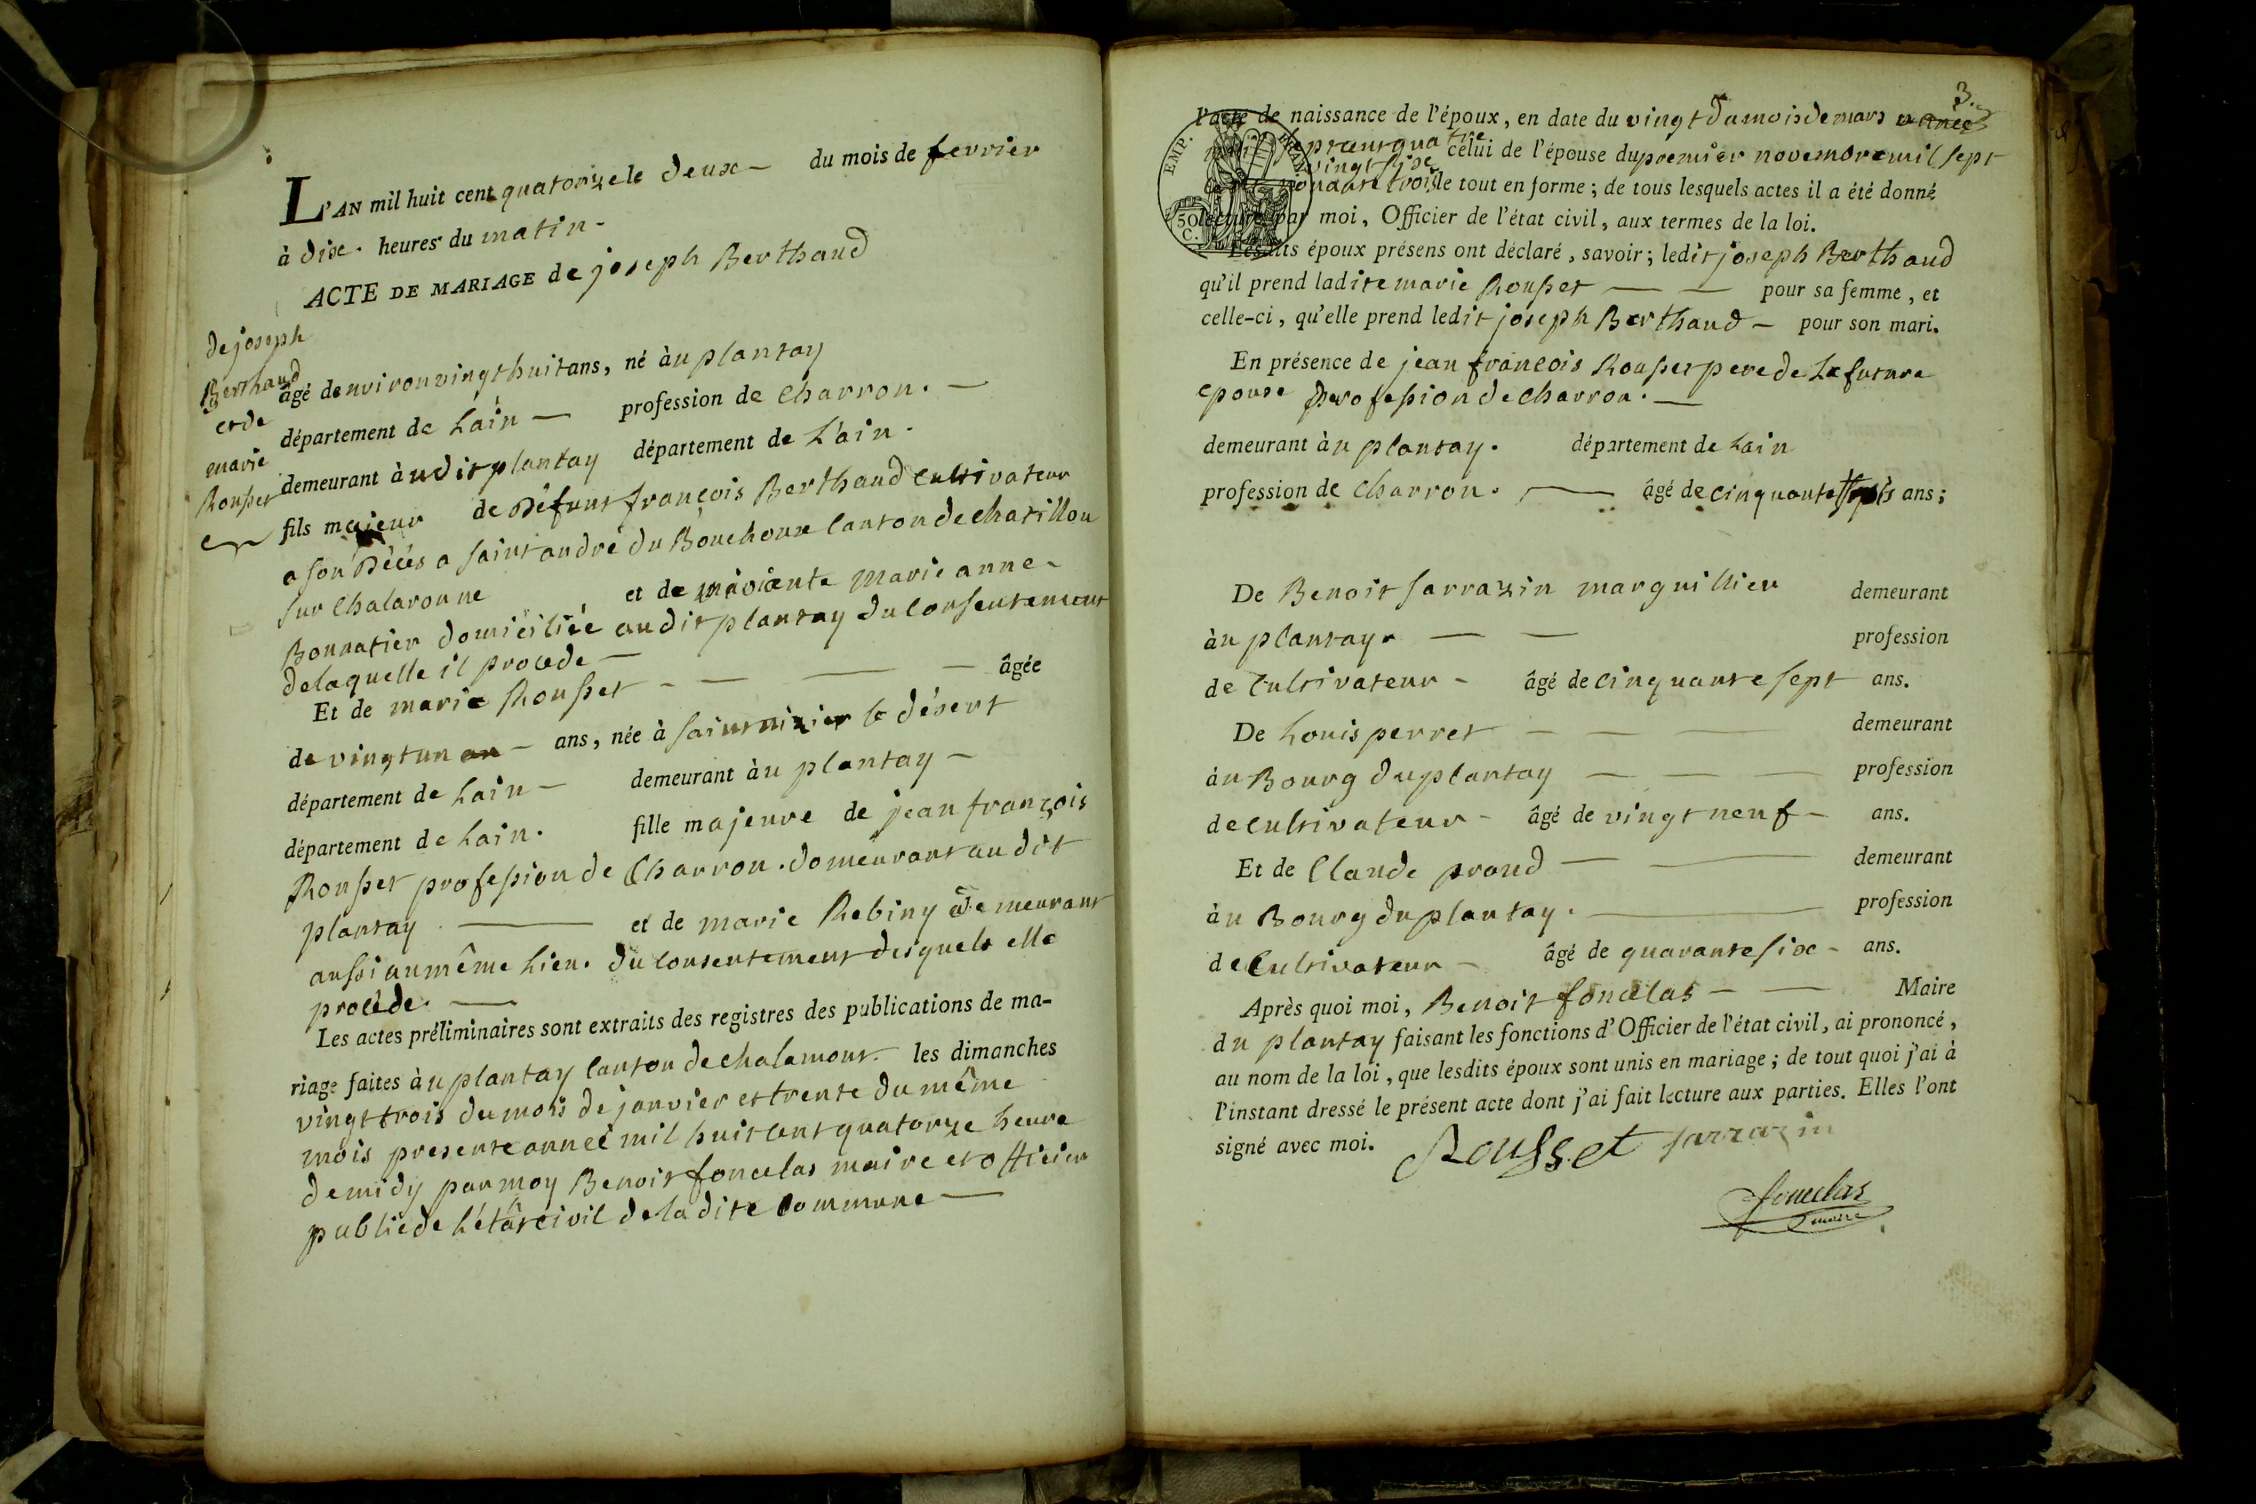 L'AN mil huit cent quatorze le deux - du mois de fevrier
à dix. heures du matin -
ACTE DE MARIAGE de joseph Berthaud
de joseph
Berthaud
et de
marie
Rousset
âgé denviron vingt huit ans, né àu plantay
département de Lain - profession de Charron. -
demeurant àudit plantay département de L'ain.
fils majeur de Défunt françois Berthaud Cultivateur
a son Décés a saint andré du Bouchoux Canton de chatillon
sur Chalaronne et de marie anne
Bonnatier domiciliée audit plantay du Consentement
delaquelle il procede -
Et de marie Rousset - - - - âgée
de vingt un an - ans, née à saint nizier le désert
département de Lain - demeurant àu plantay -
département de Lain. fille majeure de jean françois
Rousset profession de Charron. demeurant audit
plantay - et de marie Rebiny demeurant
aussi au même Lieu. du Consentement desquels elle
procède. -
Les actes préliminaires sont extraits des registres des publications de ma-
riage faites àu plantay Canton de chalamont. les dimanches
vingt trois du mois de janvier et trente du même
mois presente année mil huit cent quatorze heure
de midy par moy Benoit foncelas maire et officier
public de L'état civil de la dite Commune -
3.
l'acte de naissance de l'époux, en date du vingt du mois de mars
mil sept cent quatre
vingt six celui de l'épouse du premier novembre mil sept
cent nonante trois le tout en forme ; de tous lesquels actes il a été donné
lecture par moi, Officier de l'état civil, aux termes de la loi.
EMP. FRAN.
50 C.
Lesdits époux présens ont déclaré, savoir ; ledit joseph Berthaud
qu'il prend ladite marie Rousset - - pour sa femme, et
celle-ci, qu'elle prend ledit joseph Berthaud - pour son mari.
En présence de jean françois Rousset pere de La future
epouse profession de charron. -
demeurant àu plantay. département de Lain
profession de Charron. - âgé de cinquante trois ans ;
De Benoit sarrazin marguillier demeurant
àu plantay. - - profession
de Cultivateur - âgé de cinquante sept ans.
De Louis perret - - - demeurant
àu Bourg du plantay - - - profession
de cultivateur - âgé de vingt neuf - ans.
Et de Claude proud - - demeurant
àu Bourg du plantay. - profession
de Cultivateur - âgé de quarante six - ans.
Après quoi moi, Benoit foncelas - - Maire
du plantay faisant les fonctions d'Officier de l'état civil, ai prononcé,
au nom de la loi, que lesdits époux sont unis en mariage ; de tout quoi j'ai à
l'instant dressé le présent acte dont j'ai fait lecture aux parties. Elles l'ont
signé avec moi. Rousset sarrazin
foncelas
maire